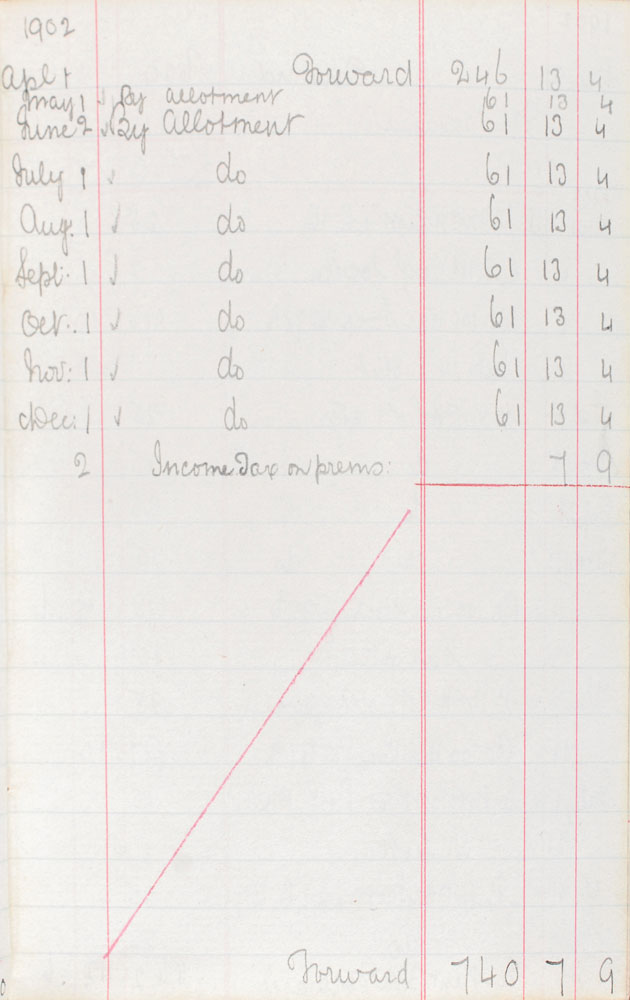 1902
Apl 1 Forward 246 13 4
May 1 ✓ By allotment 61 13 4
June 2 ✓ By Allotment 61 13 4
July 1 ✓ do 61 13 4
Aug. 1 ✓ do 61 13 4
Sept. 1 ✓ do 61 13 4
Oct. 1 ✓ do 61 13 4
Nov: 1 ✓ do 61 13 4
Dec: 1 ✓ do 61 13 4
2 Income Tax on prems: 7 9
Forward 740 7 9